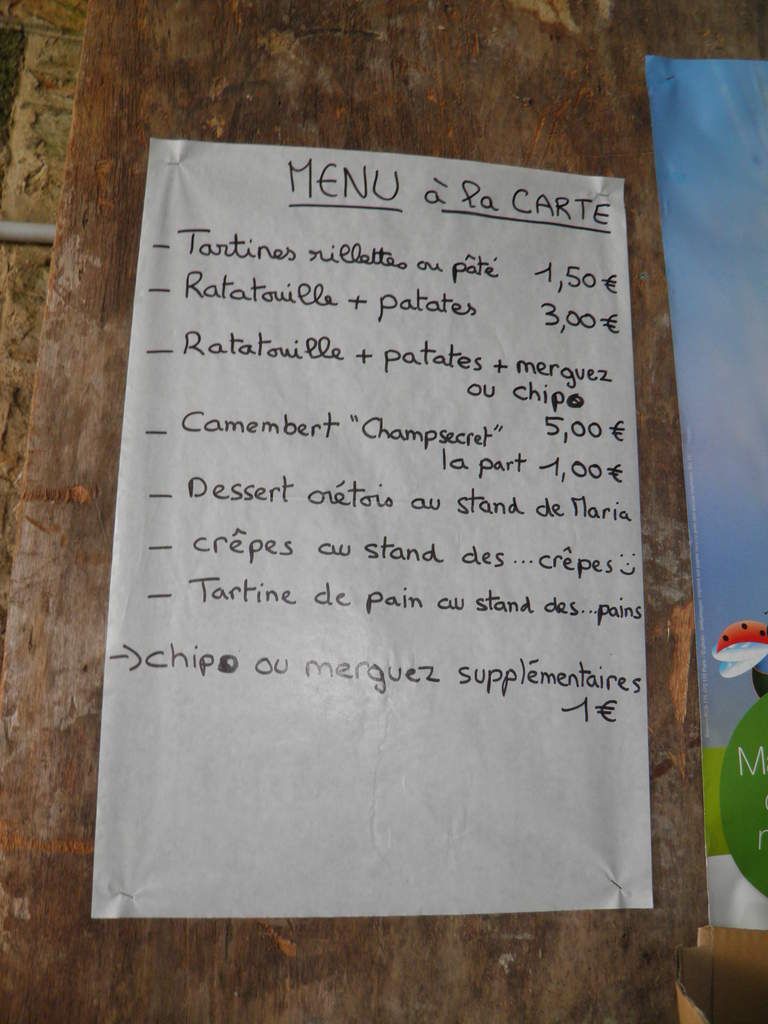 MENU à la CARTE
- Tartines rillettes ou pâté 1,50€
- Ratatouille + patates 3,00€
- Ratatouille + patates + merguez
ou chipo
5,00€
- Camembert "Champsecret"
la part 1,00€
- Dessert crétois au stand de Maria
- crêpes au stand des...crêpes :)
- Tartine de pain au stand des...pains
→ chipo ou merguez supplémentaires
1€